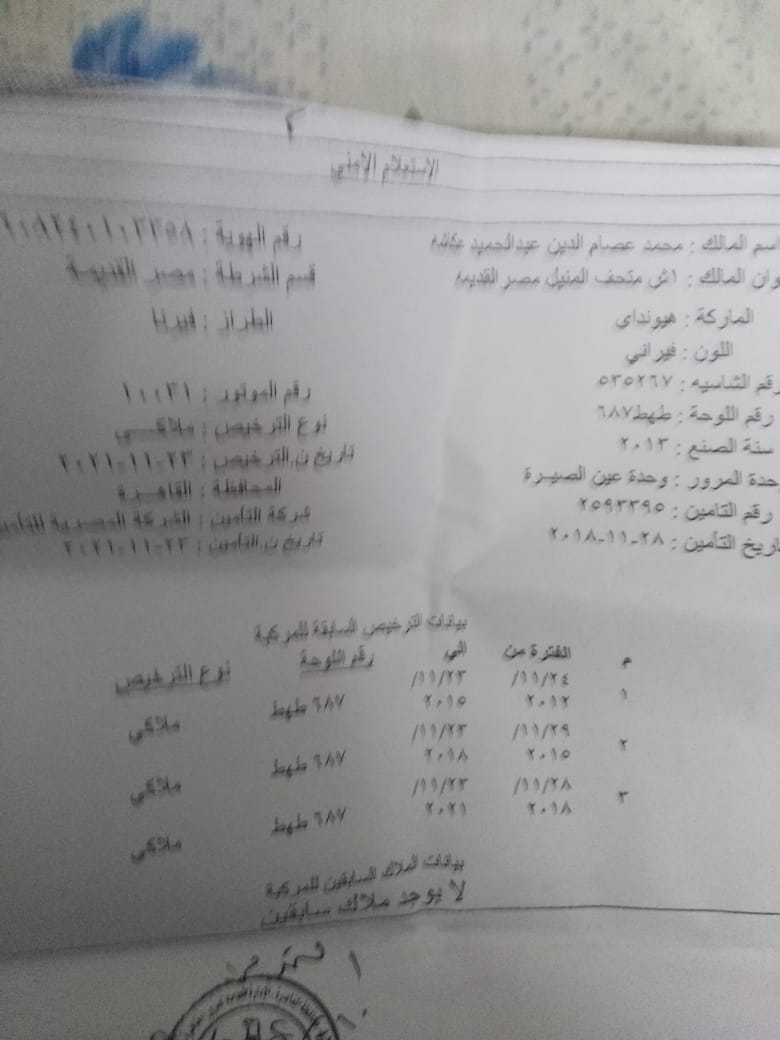 الإستعلام الامني
اسم المالك : محمد عصام الدين عبدالحميد عكاشه
رقم الهوية :
وان المالك : اش متحف المنيل مصر القديمه
قسم الشرطة : مصر القديمة
الماركة : هيونداي
الطراز : فيرنا
اللون : فيراني
رقم الشاسيه : ٥٣٥٢٦٧
رقم الموتور : ١٠٠٣١
رقم اللوحة : طهط٦٨٧
نوع الترخيص : ملاكي
سنة الصنع : ٢٠١٣
تاريخ ن.الترخيص : ٢٣-١١-٢٠٢١
حدة المرور : وحدة عين الصيرة
المحافظة : القاهرة
رقم التامين : ٢٥٩٣٣٩٥
شركة التأمين : الشركة المصرية للتأمي
اريخ التأمين : ٢٨-١١-٢٠١٨
تاريخ ن.التامين : ٢٣-١١-٢٠٢١
بيانات الترخيص السابقة للمركبة
م الفترة من الي رقم اللوحة نوع الترخيص
١ ١١/٢٤/ ١١/٢٣/
٢٠١٢ ٢٠١٥ ٦٨٧ طهط ملاكي
٢ ١١/٢٩/ ١١/٢٣/
٢٠١٥ ٢٠١٨ ٦٨٧ طهط ملاكي
٣ ١١/٢٨/ ١١/٢٣/
٢٠١٨ ٢٠٢١ ٦٨٧ طهط ملاكي
بيانات الملاك السابقين للمركبة
لا يوجد ملاك سابقين